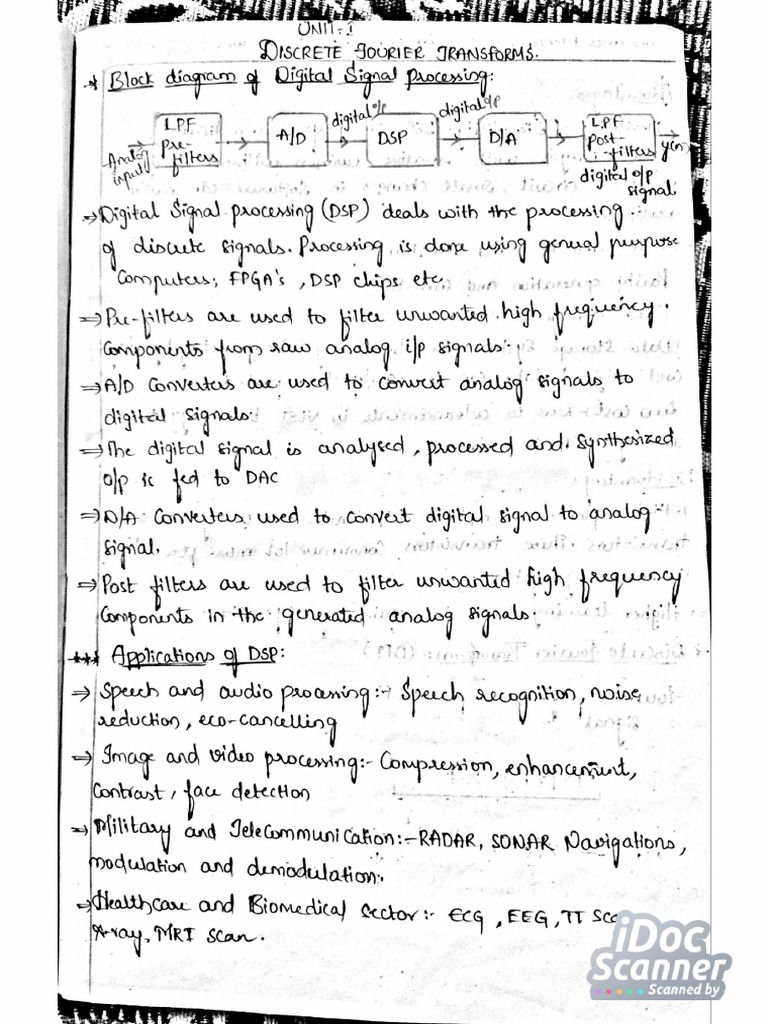 UNIT-I
DISCRETE FOURIER TRANSFORMS.
* Block diagram of Digital Signal processing:
Analog input
LPF Pre-filters
A/D
digital i/p
DSP
digital o/p
D/A
LPF Post-filters
y(n)
digital o/p signal.
→ Digital Signal processing (DSP) deals with the processing
of discrete signals. Processing is done using general purpose
Computers, FPGA's, DSP chips etc.
⇒ Pre-filters are used to filter unwanted high frequency
components from raw analog i/p signals.
⇒ A/D Converters are used to convert analog signals to
digital signals.
⇒ The digital signal is analysed, processed and synthesized
o/p is fed to DAC
⇒ D/A Converters used to convert digital signal to analog
signal.
⇒ Post filters are used to filter unwanted high frequency
components in the generated analog signals.
*** Applications of DSP:
⇒ Speech and audio processing:- Speech recognition, noise
reduction, eco-cancelling
⇒ Image and video processing:- Compression, enhancement,
Contrast, face detection
⇒ Military and TeleCommunication:- RADAR, SONAR Navigations,
modulation and demodulation.
⇒ Healthcare and Biomedical Sector:- ECG, EEG,
X-ray, MRI scan.
iDoc
Scanner
Scanned by